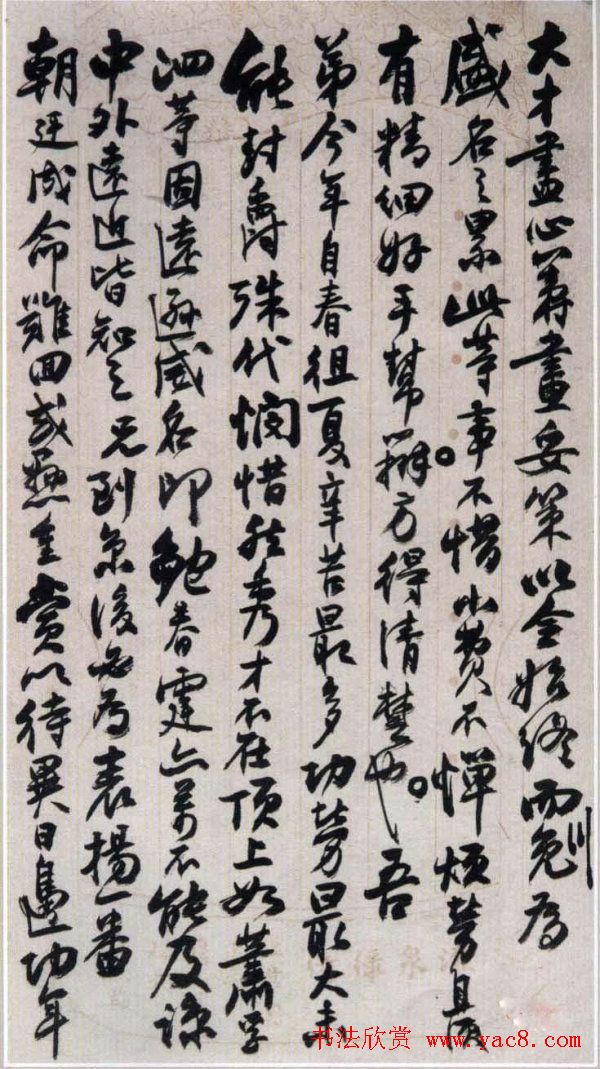 大才盡心籌畫妥策以全始終而免為
盛名之累此等事不惜小費不憚煩勞且須
有精細好手幫辦方得清楚也吾
弟今年自春徂夏辛苦最多功勞最大未
能封爵殊代憫惜然秀才不在頂上如蕭孚
泗等固遠遜威名即鮑春霆亦萬不能及諒
中外遠近皆知之兄到京後必為表揚一番
朝廷成命難回或懋重賞以待異日邊功年
书法欣赏 www.yac8.com